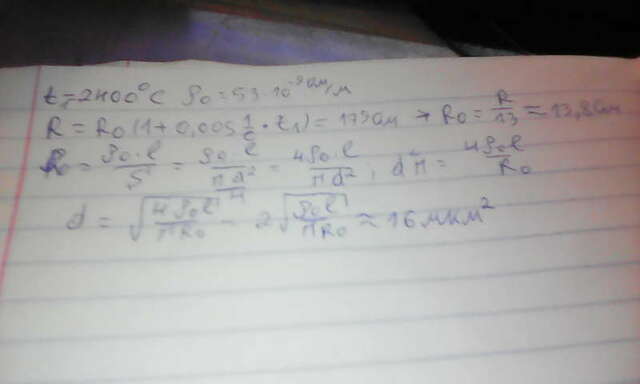 t₁=2400°C ρ₀=53·10⁻⁹ Ом/м
R = R₀(1+0,005 1/C · t₁) = 179 Ом → R₀ = R/13 ≈ 13,8 Ом
R₀ = ρ₀·l/S = ρ₀·l/(πd²/4) = 4ρ₀·l/πd² ; d²π = 4ρ₀l/R₀
d = √(4ρ₀l/πR₀) = 2√(ρ₀l/πR₀) ≈ 16 мкм²